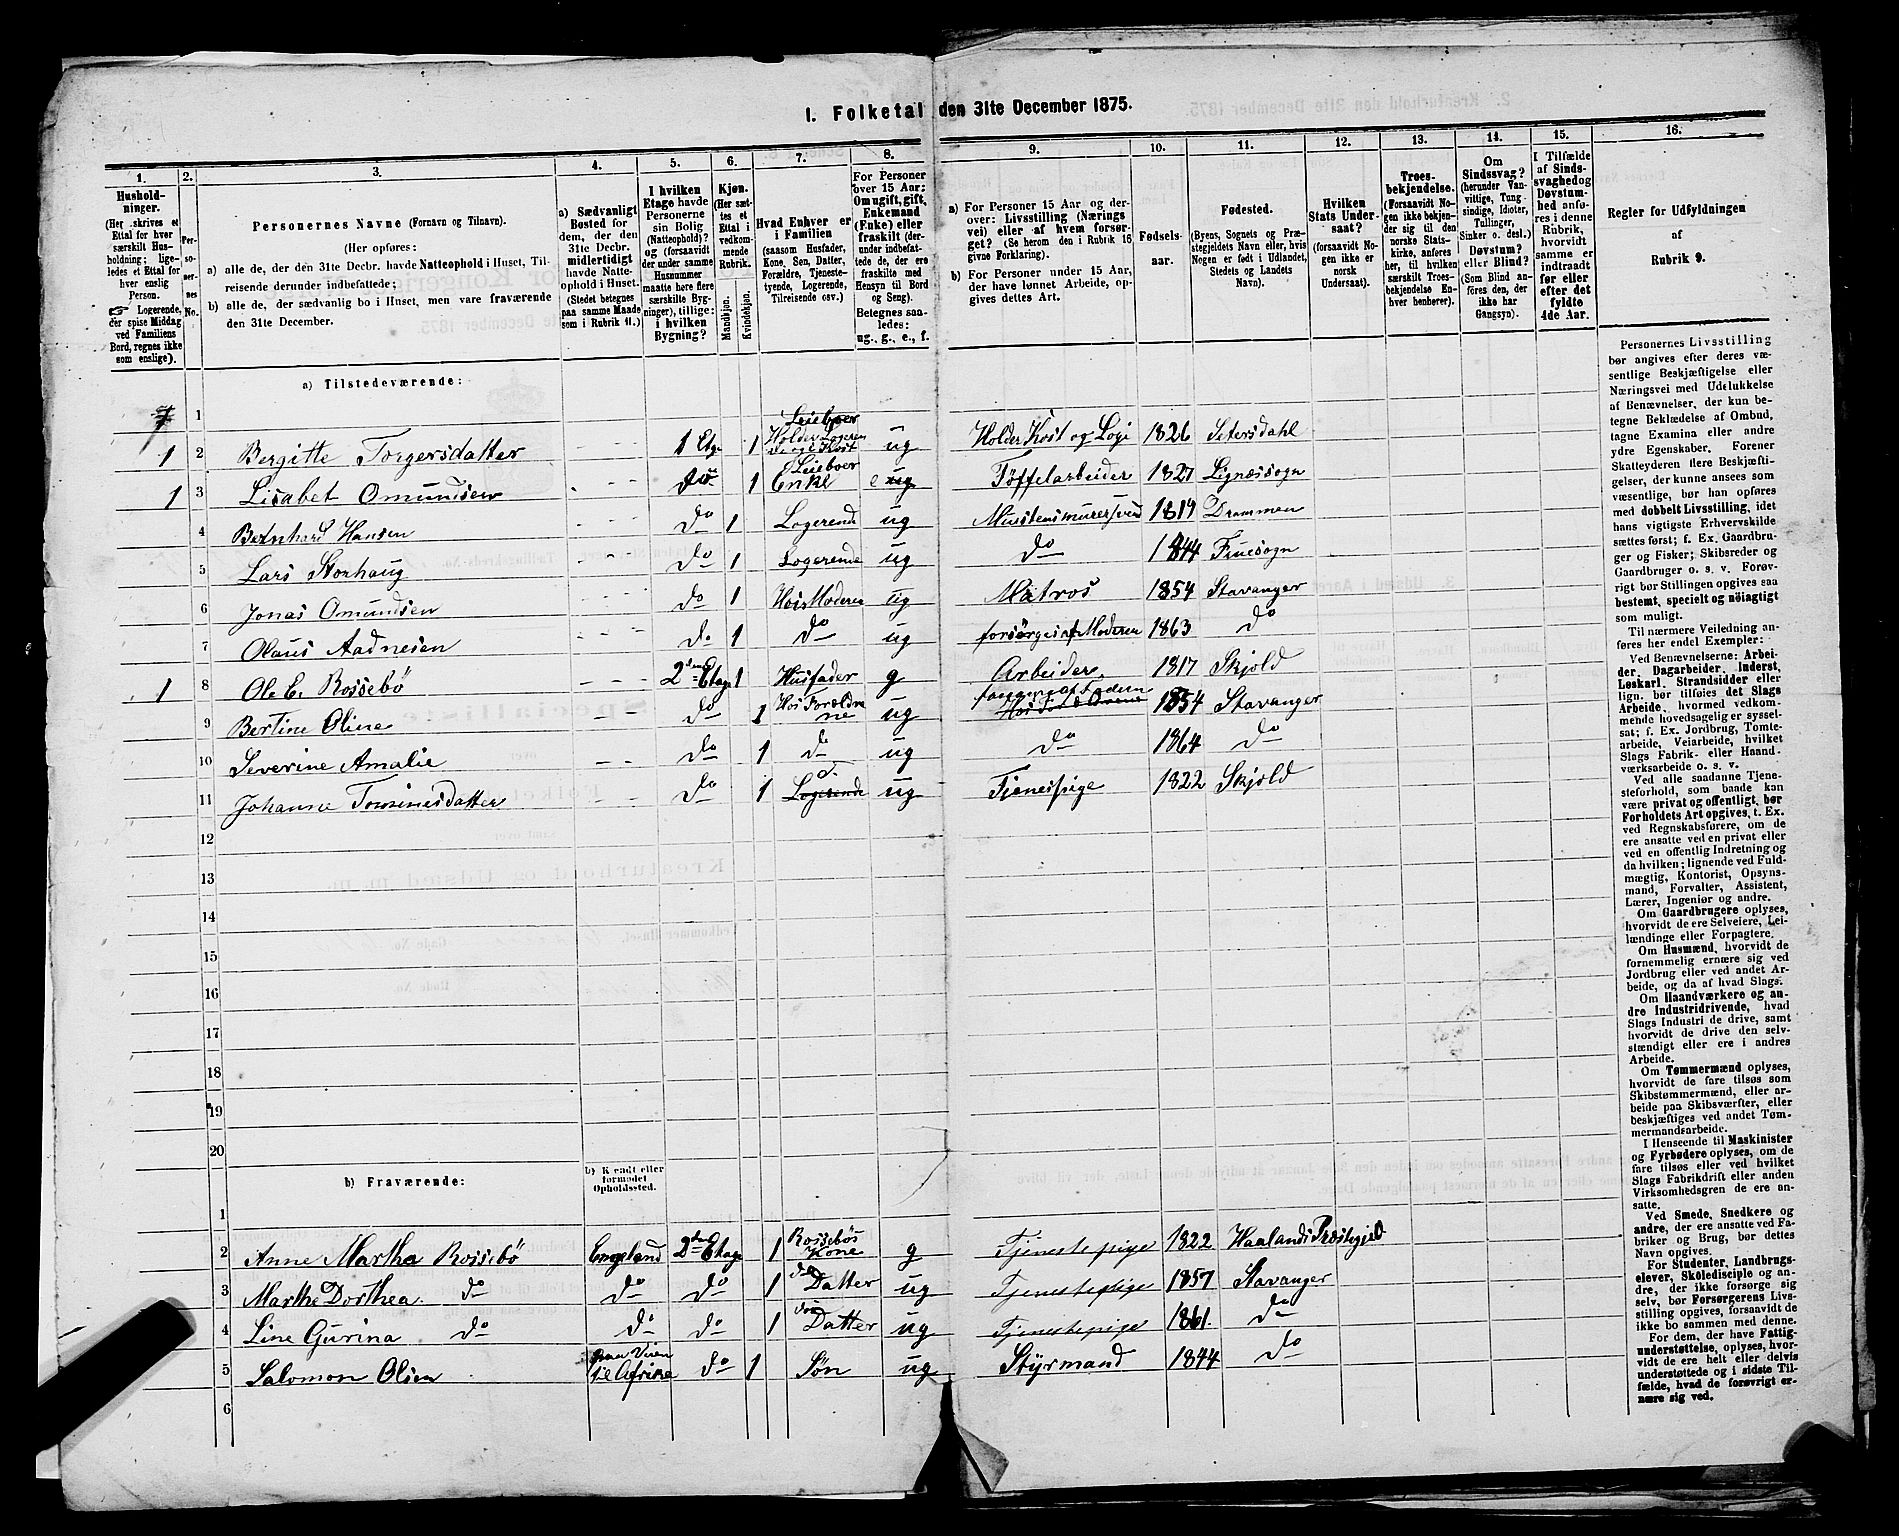 1. Folketal den 31te December 1875.
1. 2. 3. 4. 5. 6. 7. 8. 9. 10. 11. 12. 13. 14. 15. 16.
Hushold-
ninger.
(Her skrives et
Ettal for hver
særskilt Hus-
holdning; lige-
ledes et Ettal for
hver enslig
Person.
Logerende,
der spise Middag
ved Familiens
Bord, regnes ikke
som enslige).
Per-
so-
ner-
nes
No.
Personernes Navne (Fornavn og Tilnavn).
(Her opføres:
a) alle de, der den 31te Decbr. havde Natteophold i Huset, Til-
reisende derunder indbefattede;
b) alle de, der sædvanlig bo i Huset, men vare fraværende
den 31te December.
a) Sædvanligt
Bosted for
dem, der den
31te Decbr.
midlertidigt
havde Natte-
ophold i Huset.
(Stedet betegnes
paa samme Maade
som i Rubrik 11.)
I hvilken
Etage havde
Personerne
sin Bolig
(Natteophold)?
og (forsaavidt
der under samme
Husnummer
maatte høre flere
særskilte Byg-
ninger), tillige:
i hvilken
Bygning?
Kjøn.
(Her sæt-
tes et
Ettal i
vedkom-
mende
Rubrik.
Mandkjøn.
Kvindekjøn.
Hvad Enhver er
i Familien
(saasom Husfader,
Kone, Søn, Datter,
Forældre, Tjeneste-
tyende, Logerende,
Tilreisende osv.)
For Personer
over 15 Aar:
Om ugift, gift,
Enkemand
(Enke) eller
fraskilt (der-
under indbefat-
tede de, der ere
fraskilte med
Hensyn til Bord
og Seng).
Betegnes saa-
ledes:
ug., g., e., f.
a) For Personer 15 Aar og der-
over: Livsstilling (Nærings
vei) eller af hvem forsør-
get? (Se herom den i Rubrik 16
givne Forklaring).
b) For Personer under 15 Aar,
der have lønnet Arbeide, op-
gives dettes Art.
Fødsels-
aar.
Fødested.
(Byens, Sognets og Præ-
stegjeldets Navn eller, hvis
Nogen er født i Udlandet,
Stedets og Landets
Navn).
Hvilken
Stats Under-
saat?
(forsaavidt No-
gen ikke er
norsk
Undersaat).
Troes-
bekjendelse.
(Forsaavidt No-
gen ikke bekjen-
der sig til den
norske Stats-
kirke, anføres
her, til hvilken
særskilt Troes-
bekjendelse En-
hver henhører).
Om
Sindssvag?
(herunder Van-
vittige, Tung-
sindige, Idioter,
Tullinger,
Sinker o. desl.)
Døvstum?
eller Blind?
(Som Blind an-
føres den, der
ikke har
Gangsyn).
I Tilfælde
af Sinds-
svaghed og
Døvstum-
hed anfø-
res i denne
Rubrik,
hvorvidt
samme er
indtraadt
før eller
efter det
fyldte
4de Aar.
Regler for Udfyldningen
af
Rubrik 9.
a) Tilstedeværende:
1
1 2 Bergitte Torgersdatter - - - 1 Etg 1 Leieboer Holder Logeren de og i Kost ug Holder Kost og Logi 1826 Setersdahl
1 3 Lisabet Omundsen - - - do 1 Leieboer Enke e ug Tøffelarbeider 1827 Lignessogn
4 Bernhard Hansen - - - do 1 Logerend ug 1819 Drammen
5 Lars Storhaug - - - do 1 Logerende ug do 1844 Fruesogn
6 Jonas Omundsen - - - do 1 Hos Moderen ug Matros 1854 Stavanger
7 Olaus Aadnesen - - - do 1 do ug forsørges af Moderen 1863 do
1 8 Ole E. Rossebö - - - 2den Etage 1 Husfader g Arbeider 1817 Skjold
9 Bertine Oline - - do 1 Hos Foreldre ne ug af Faderen 1854 Stavanger
10 Severine Amalie - - do 1 do ug do 1864 do
11 Johanne Tominesdatter - - do 1 Logerende ug Tjenespige 1822 Skjold
12
13
14
15
16
17
18
19
20
b) Fraværende:
b) Kjendt eller
formodet
Opholdssted.
1
2 Anne Martha Rossebö Engeland 2den Etage 1 Rossebös Kone g Tjenestepige 1822 Haalands Præstegjeld
3 Marthe Dorthea do do do 1 do Datter ug Tjenestepige 1857 Stavanger
4 Line Gurina do do do 1 do Datter ug Tjenestepige 1861. do
5 Salomon Olsen Paa Veien til Afrika do 1 Søn ug Styrmand 1844 do
6
Personernes Livsstilling
bør angives efter deres væ-
sentlige Beskjæftigelse eller
Næringsvei med Udelukkelse
af Benævnelser, der kun be-
tegne Beklædelse af Ombud,
tagne Examina eller andre
ydre Egenskaber. Forener
Skatteyderen flere Beskjæfti-
gelser, der kunne ansees som
væsentlige, bør han opføres
med dobbelt Livsstilling, idet
hans vigtigste Erhvervskilde
sættes først; f. Ex. Gaardbru-
ger og Fisker; Skibsreder og
Gaardbruger o. s. v. Forøv-
rigt bør Stillingen opgives saa
bestemt, specielt og nøiagtigt
som muligt.
Til nærmere Veiledning an-
føres her endel Exempler:
Ved Benævnelserne: Arbei-
der, Dagarbeider, Inderst,
Løskarl, Strandsidder eller
lign. bør tilføies det Slags
Arbeide, hvormed vedkom-
mende hovedsagelig er syssel-
sat; f. Ex. Jordbrug, Tomte-
arbeide, Veiarbeide, hvilket
Slags Fabrik- eller Haand-
værksarbeide o. s. v.
Ved alle saadanne Tjene-
steforhold, som baade kan
være privat og offentligt, bør
Forholdets Art opgives, t. Ex.
ved Regnskabsførere, om de
ere ansatte ved en privat eller
ved en offentlig Indretning og
da hvilken; lignende ved Fuld-
mægtig, Kontorist, Opsyns-
mand, Forvalter, Assistent,
Lærer, Ingeniør og andre.
Om Gaardbrugere oplyses,
hvorvidt de ere Selveiere, Lei-
lændinge eller Forpagtere.
Om Husmænd, hvorvidt de
fornemmelig ernære sig ved
Jordbrug eller ved andet Ar-
beide, og da af hvad Slags.
Om Haandværkere og an-
dre Industridrivende, hvad
Slags Industri de drive, samt
hvorvidt de drive den selv-
stændigt eller ere i andres
Arbeide.
Om Tømmermænd oplyses,
hvorvidt de fare tilsøs som
Skibstømmermænd, eller ar-
beide paa Skibsværfter, eller
beskjæftiges ved andet Tøm-
mermandsarbeide.
I Henseende til Maskinister
og Fyrbødere oplyses, om de
fare tilsøs eller ved hvilket
Slags Fabrikdrift eller anden
Virksomhedsgren de ere an-
satte.
Ved Smede, Snedkere og
andre, der ere ansatte ved Fa-
briker og Brug, bør dettes
Navn opgives.
For Studenter, Landbrugs-
elever, Skoledisciple og an-
dre, der ikke forsørge sig
selv, bør Forsørgerens Livs-
stilling opgives, forsaavidt de
ikke bo sammen med denne.
For dem, der have Fattig-
understøttelse, oplyses, hvor-
vidt de ere helt eller delvis
understøttede og i sidste Til-
fælde, hvad de forøvrigt er-
nære sig ved.